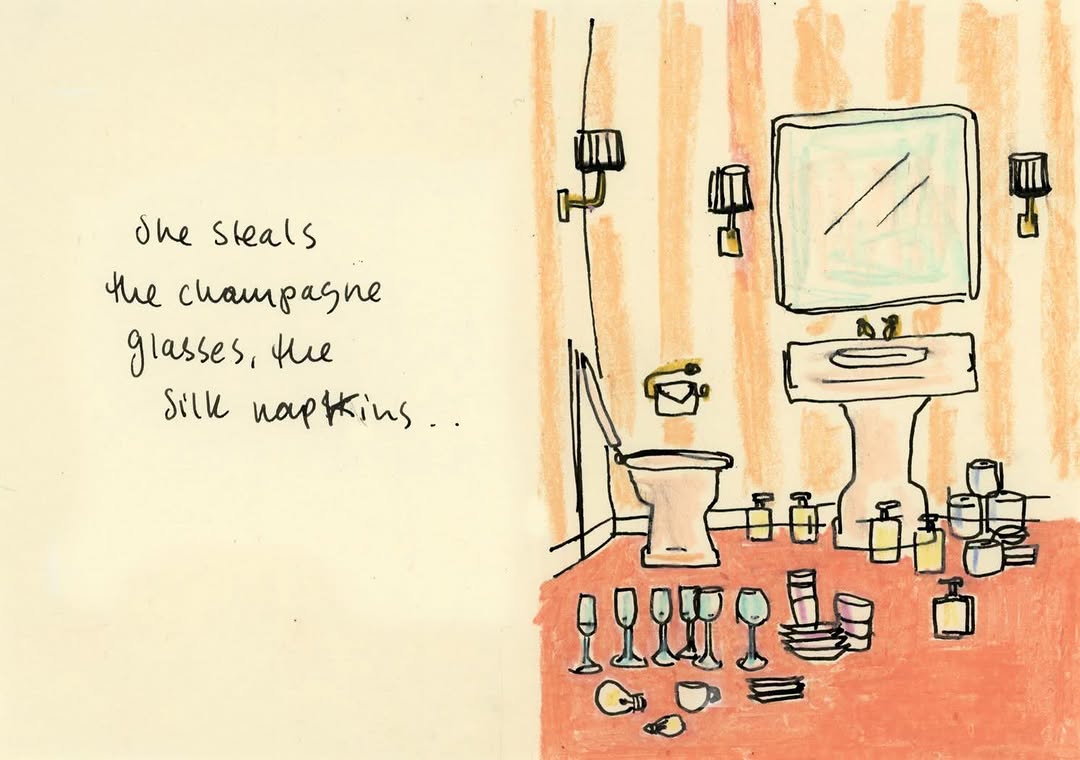 She steals
the champagne
glasses, the
silk napkins..